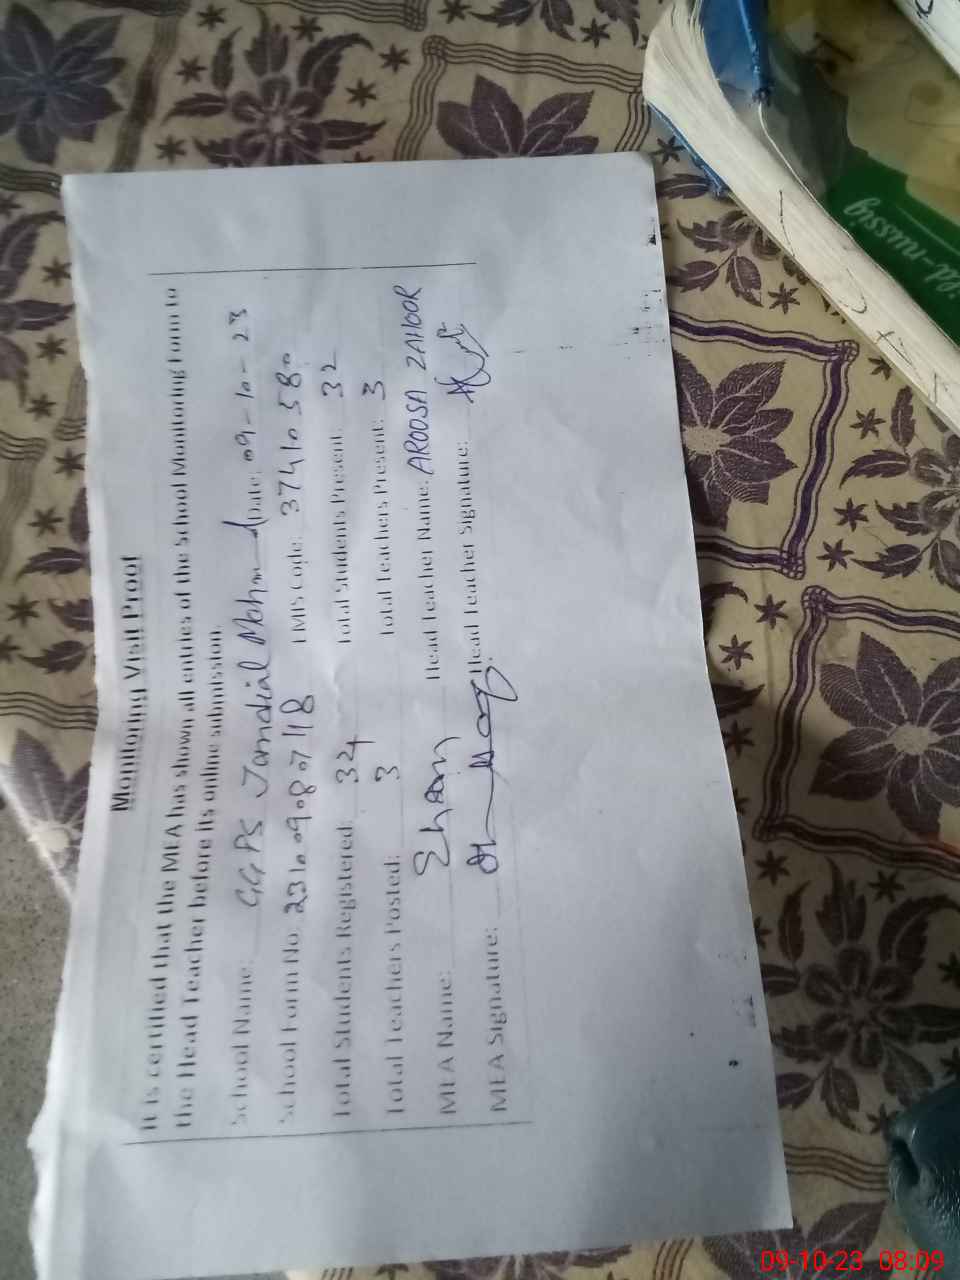 Monitoring Visit Proof
It is certified that the MEA has shown all entries of the School Monitoring Form to
the Head Teacher before its online submission.
School Name: GGPS Jandial Mohmd Date: 09-10-23
School Form No. 231009807118 EMIS Code: 37410580
Total Students Registered: 34 Total Students Present: 32
Total Teachers Posted: 3 Total Teachers Present: 3
MEA Name: Head Teacher Name: AROOSA ZAHOOR
MEA Signature: Head Teacher Signature:
09-10-23 08:09